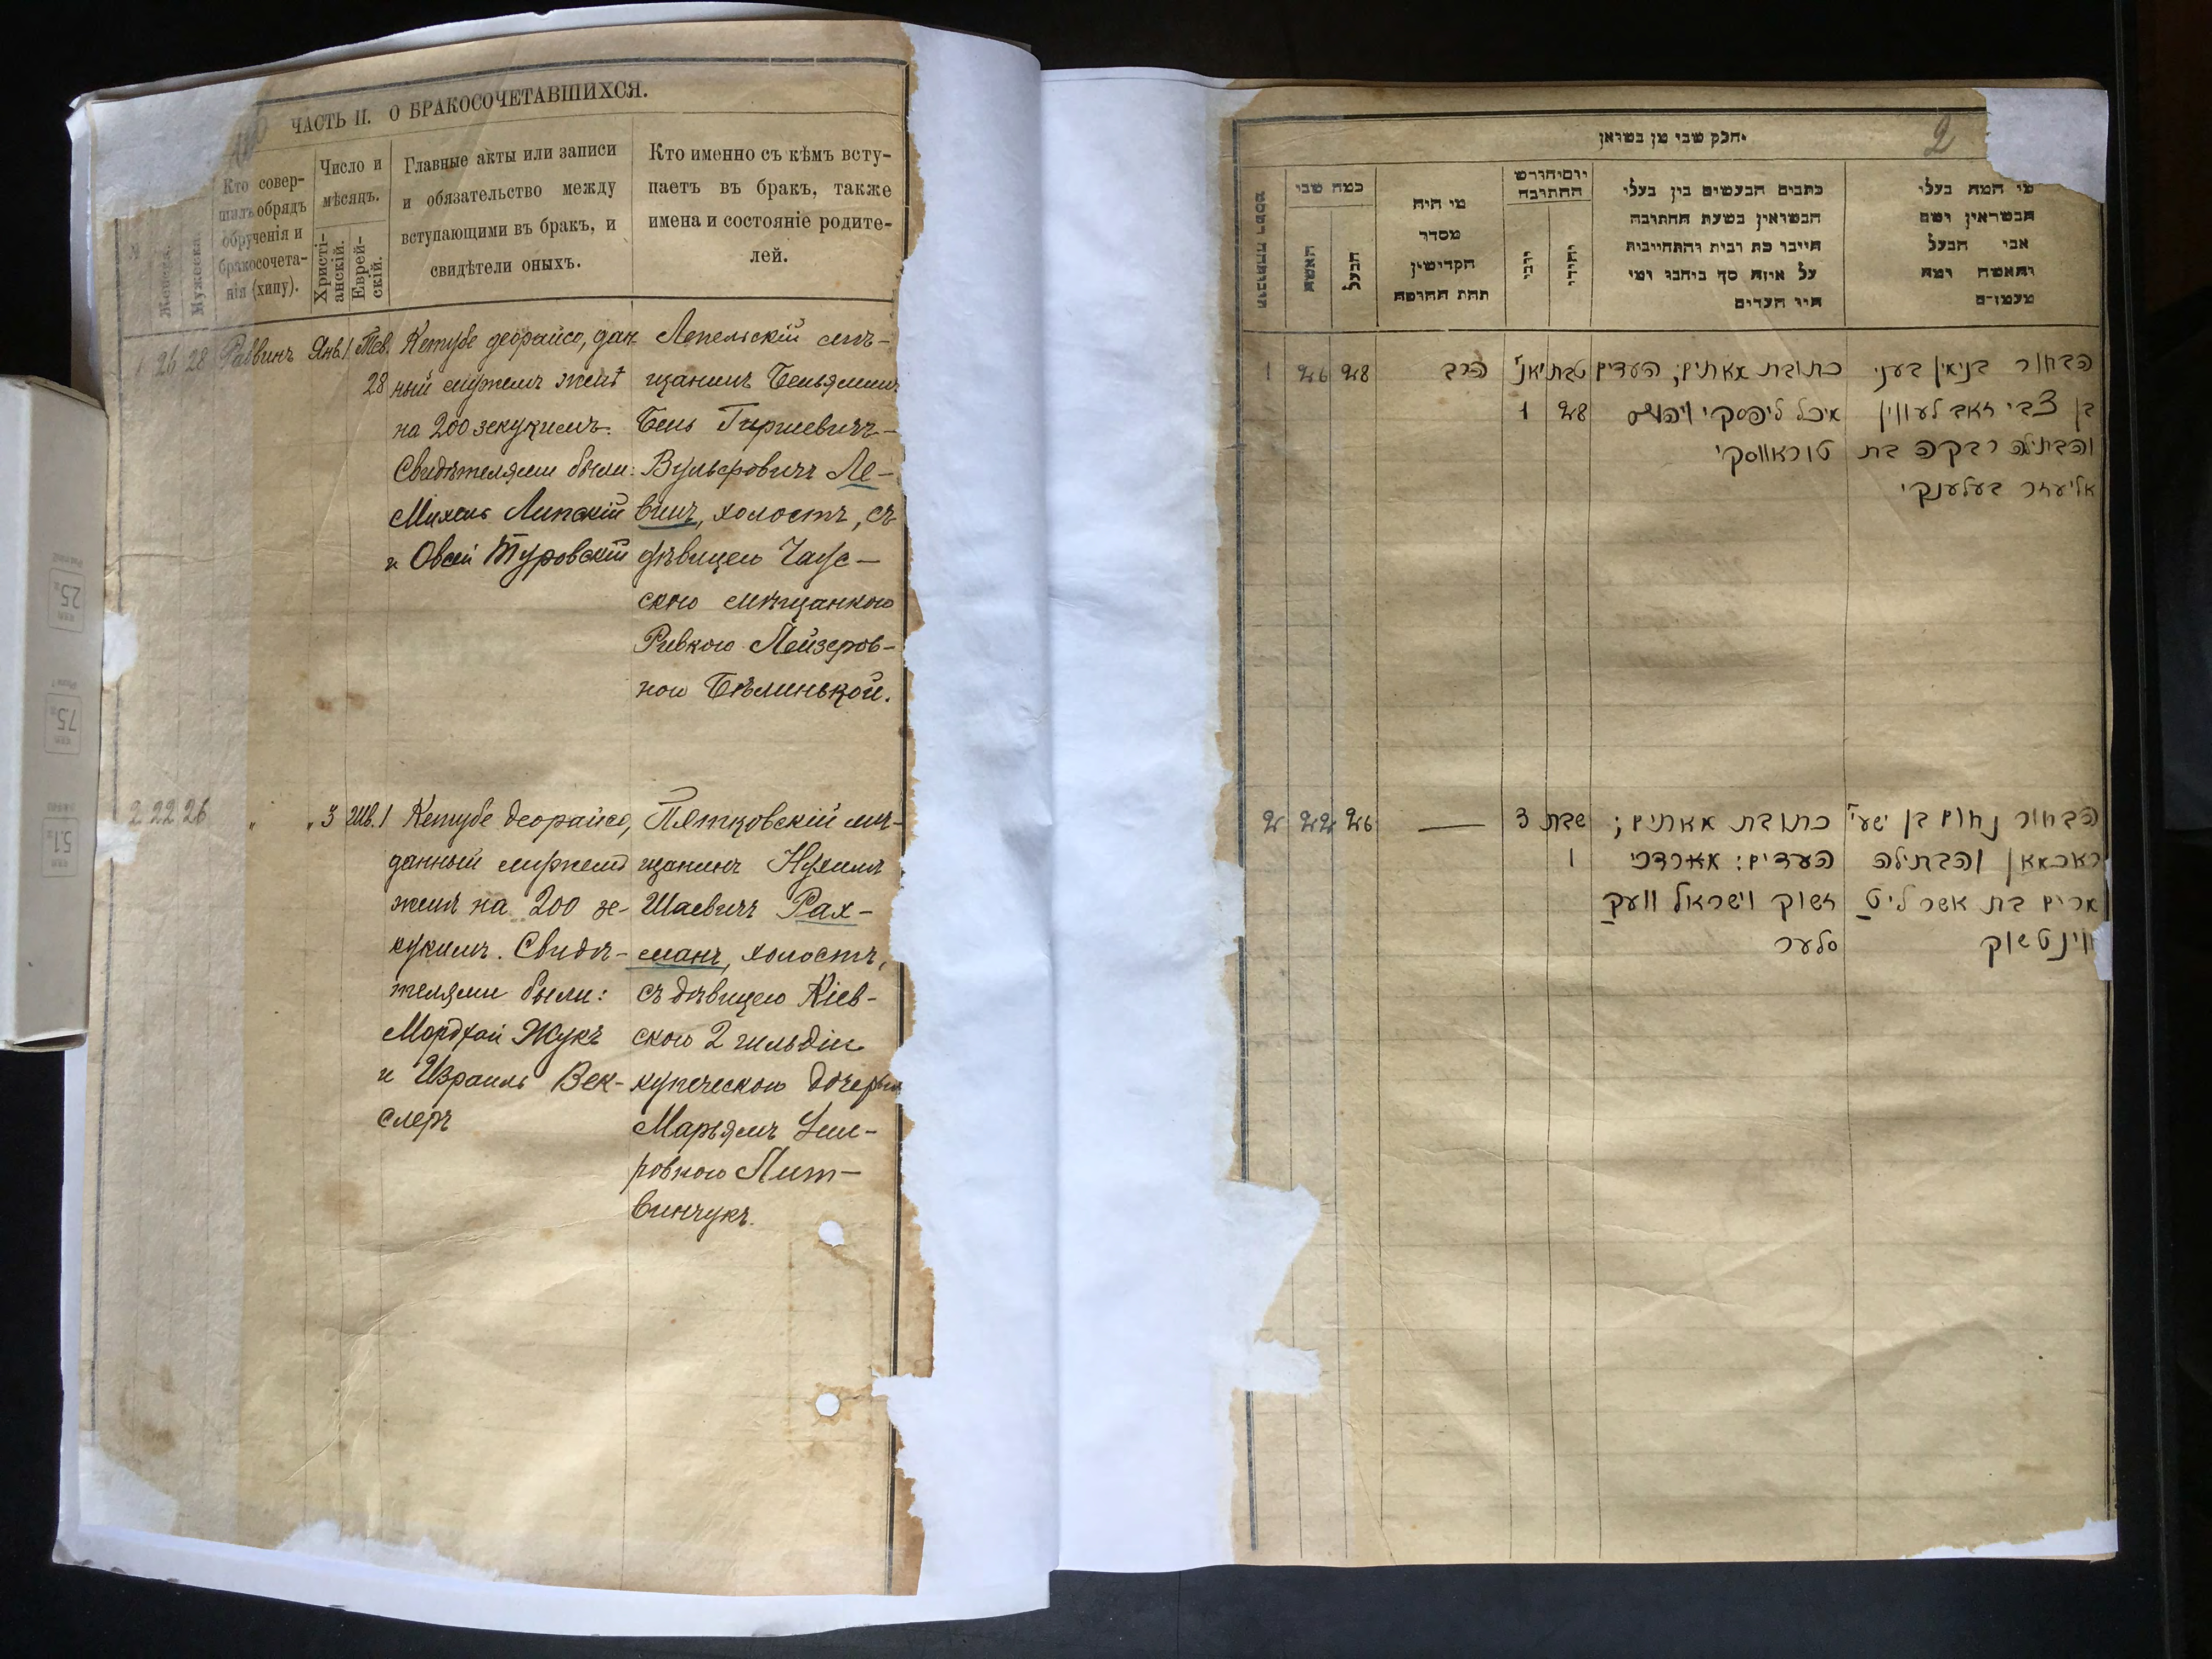 ЧАСТЬ II. О БРАКОСОЧЕТАВШИХСЯ.
Женска.
Мужеска.
Кто совер-
шилъ обрядъ
обрученія и
бракосочета-
нія (хипу).
Число и
мѣсяцъ.
Христі-
анскій.
Еврей-
скій.
Главные акты или записи
и обязательство между
вступающими въ бракъ, и
свидѣтели оныхъ.
Кто именно съ кѣмъ всту-
паетъ въ бракъ, также
имена и состояніе родите-
лей.
1 26 28 Раввинъ Янв. 1 Тев.
28
Кетубе деорайсо, дан-
ный мужемъ женѣ
на 200 зекукимъ.
Свидѣтелями были:
Михель Липскій
и Овсей Туровскій
Лепельскій мѣ-
щанинъ Беньяминъ
Бень Гиршевичъ-
Вульфовичъ Ле-
винъ, холостъ, съ
дѣвицею Чаус-
скою мѣщанкою
Ривкою Лейзеров-
ною Бѣлинькой.
2 22 26 " " 3 Шв. 1
Кетубе деорайсо,
данный мужемъ
женѣ на 200 зе-
кукимъ. Свидѣ-
телями были:
Мордхай Жукъ
и Израиль Век-
слеръ
Пятковскій мѣ-
щанинъ Нухимъ
Шаевичъ Рах-
манъ, холостъ,
съ дѣвицею Кіев-
скою 2 гильдіи
купеческою дочерью
Марьямъ Уше-
ровною Лит-
винчукъ.
2
חלק שני מן נשואין
מי המה בעלי
הנשואין ושם
אבי הבעל
והאשה ומה
מעמדם
כתבים הנעשים בין בעלי
הנשואין בשעת החתונה
חייבו כת רבית והתחייבות
על איזה סך ביחבו ומי
היו העדים
יום וחודש
החתונה
יהודי
מי היה
מסדר
הקדושין
תחת החופה
כמה שני
הבעל
האשה
הבחור בנימין בעני
בן צבי זאב לעווין
והבתולה רבקה בת
אליעזר בעלענקי
כתובת מאתים; העדים
מיכל ליפסקי ויהושע
טוראווסקי
טבת
28
ינאר
1
הרב
28 26 1
הבחור נחום בן ישעי'
ראכמאן והבתולה
מרים בת אשר ליט
ווינטשוק
כתובת מאתים;
העדים: מארדכי
זשוק וישראל וועק
סלער
שבת
1
3
—
26 22 2